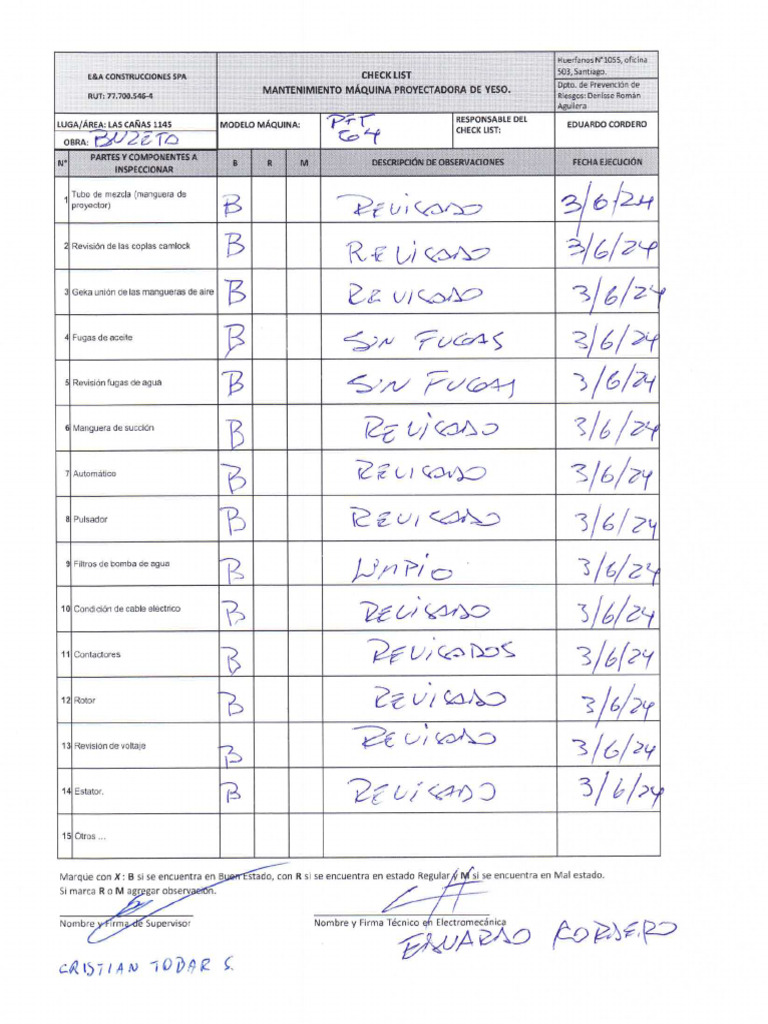 E&A CONSTRUCCIONES SPA
RUT: 77.700.546-4
CHECK LIST
MANTENIMIENTO MÁQUINA PROYECTADORA DE YESO.
Huerfanos N°1055, oficina
503, Santiago.
Dpto. de Prevención de
Riesgos: Denisse Román
Aguilera
LUGA/ÁREA: LAS CAÑAS 1145
OBRA: BUZETO
MODELO MÁQUINA: PFT
G4
RESPONSABLE DEL
CHECK LIST:
EDUARDO CORDERO
N° PARTES Y COMPONENTES A
INSPECCIONAR B R M DESCRIPCIÓN DE OBSERVACIONES FECHA EJECUCIÓN
1 Tubo de mezcla (manguera de
proyector) B REVISADO 3/6/24
2 Revisión de las coplas camlock B REVISADO 3/6/24
3 Geka unión de las mangueras de aire B REVISADO 3/6/24
4 Fugas de aceite B SIN FUGAS 3/6/24
5 Revisión fugas de agua B SIN FUGAS 3/6/24
6 Manguera de succión B REVISADO 3/6/24
7 Automático B REVISADO 3/6/24
8 Pulsador B REVISADO 3/6/24
9 Filtros de bomba de agua B LIMPIO 3/6/24
10 Condición de cable eléctrico B REVISADO 3/6/24
11 Contactores B REVISADOS 3/6/24
12 Rotor B REVISADO 3/6/24
13 Revisión de voltaje B REVISADO 3/6/24
14 Estator. B REVISADO 3/6/24
15 Otros ...
Marque con X : B si se encuentra en Buen Estado, con R si se encuentra en estado Regular y M si se encuentra en Mal estado.
Si marca R o M agregar observación.
Nombre y Firma de Supervisor
Nombre y Firma Técnico en Electromecánica
EDUARDO CORDERO
CRISTIAN TODAR S.